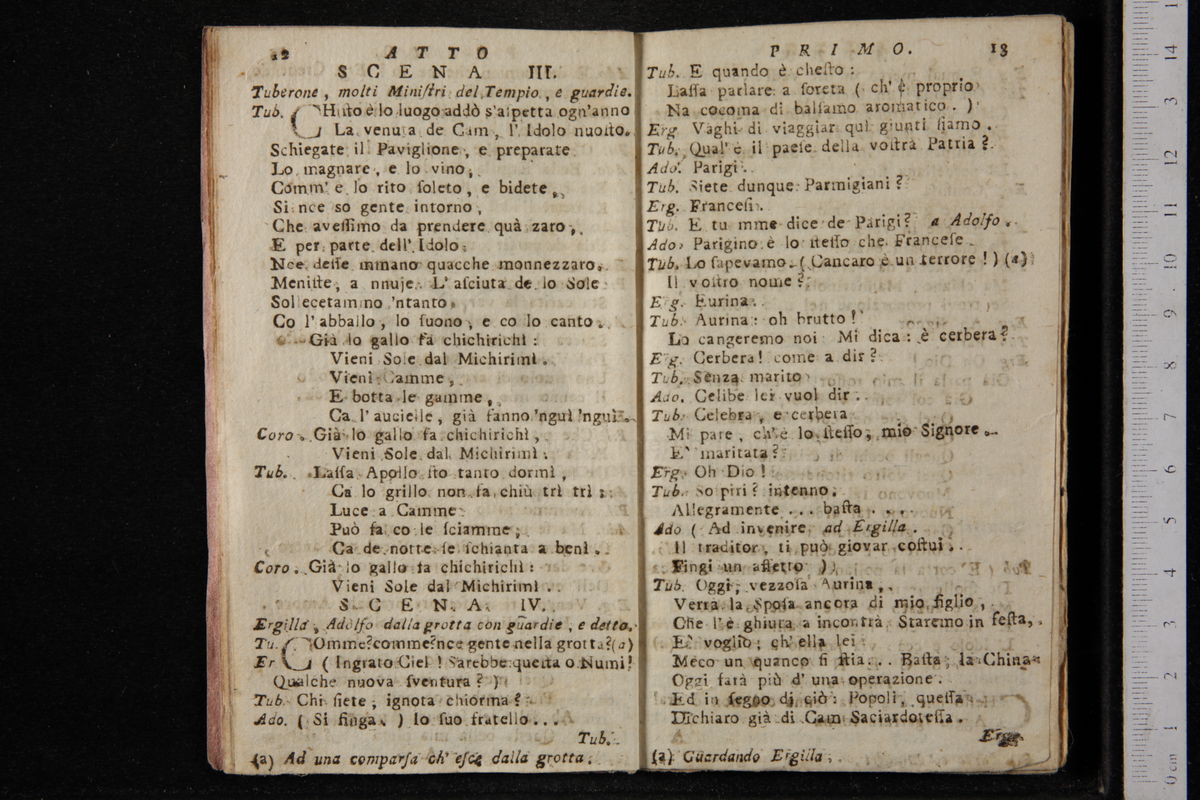 12 ATTO
SCENA III.
Tuberone, molti Miniſtri del Tempio, e guardie.
Tub. CHiſto è lo luogo addò s'aſpetta ogn'anno
La venuta de Cam, l'Idolo nuoſto.
Schiegate il Paviglione, e preparate
Lo magnare, e lo vino,
Comm' è lo rito ſoleto, e bidete,
Si nce so gente intorno,
Che aveſſimo da prendere quà zaro,
E per parte dell' Idolo
Nce deſſe mmano quacche monnezzaro.
Meniſte, a nnuje. L' aſciuta de lo Sole
Sollecetammo 'ntanto
Co l'abballo, lo ſuono, e co lo canto.
Già lo gallo fa chichirichì:
Vieni Sole dal Michirimì.
Vieni Camme,
E botta le gamme,
Ca l'aucielle, già fanno 'nguì 'nguì.
Coro. Già lo gallo fa chichirichì,
Vieni Sole dal Michirimì.
Tub. Laſſa Apollo ſto tanto dormì,
Ca lo grillo non fa chiù trì trì:
Luce a Camme
Può fa co le ſciamme,
Ca de notte ſe ſchianta a benì.
Coro. Già lo gallo fa chichirichì:
Vieni Sole dal Michirimì.
SCENA IV.
Ergilla, Adolfo dalla grotta con guardie, e detto.
Tu. COmme? comme? nce gente nella grotta? (a)
Er (Ingrato Ciel! Sarebbe queſta o Numi!
Qualche nuova ſventura?)
Tub. Chi ſiete, ignota chiorma?
Ado. (Si finga.) Io ſuo fratello...
Tub.
(a) Ad una comparſa ch' eſce dalla grotta.
PRIMO. 13
Tub. E quando è cheſto:
Laſſa parlare a ſoreta (ch' è proprio
Na cocoma di balſamo aromatico.)
Erg. Vaghi di viaggiar quì giunti ſiamo.
Tub. Qual' è il paeſe della voſtra Patria?
Ado. Parigi.
Tub. Siete dunque Parmigiani?
Erg. Franceſi.
Tub. E tu mme dice de Parigi? a Adolfo.
Ado. Parigino è lo ſteſſo che Franceſe.
Tub. Lo ſapevamo. (Cancaro è un terrore!) (a)
Il voſtro nome?
Erg. Eurina.
Tub. Aurina: oh brutto!
Lo cangeremo noi. Mi dica: è cerbera?
Erg. Cerbera! come a dir?
Tub. Senza marito
Ado. Celibe lei vuol dir.
Tub. Celebra, e cerbera
Mi pare, ch'è lo ſteſſo, mio Signore.
E' maritata?
Erg. Oh Dio!
Tub. So piri? intenno.
Allegramente... baſta...
Ado (Ad invenire ad Ergilla.
Il traditor, ti può giovar coſtui.
Fingi un affetto)
Tub. Oggi, vezzoſa Aurina,
Verrà la Spoſa ancora di mio figlio,
Che l'è ghiuta a incontrà. Staremo in feſta,
E' voglio, ch' ella lei
Meco un quanco ſi ſtia... Baſta, la China
Oggi farà più d' una operazione.
Ed in ſegno di ciò: Popoli, queſſa
Dichiaro già di Cam Saciardoteſſa.
Erg.
(a) Guardando Ergilla.